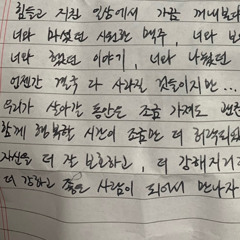 힘들고 지친 일상에서 가끔 꺼내보다
너와 마셨던 시원한 맥주, 너와 보
너와 했던 이야기, 너와 나눴던
언젠간 결국 다 사라질 것들이지만...
우리가 살아갈 동안은 조금 가져도 괜찮
함께 행복한 시간이 조금만 더 허락되
자신을 더 잘 보호하고, 더 강해지거라
더 강하고 좋은 사람이 되어서 만나자